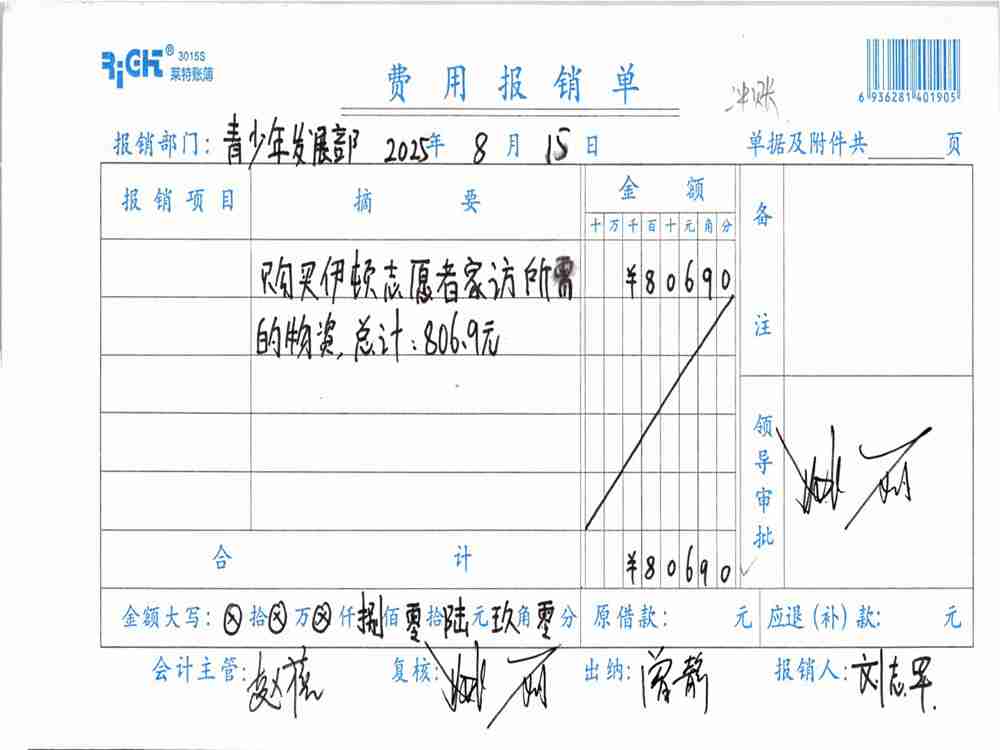 RiGHT® 3015S
莱特账簿
费用报销单
冲账
6 936281 401905
报销部门：青少年发展部 2025年 8月 15日 单据及附件共 页
报销项目 摘要 金额 备注
十万千百十元角分
购买伊顿志愿者家访所需 ¥80690
的物资，总计：806.9元
领导审批
合计 ¥80690
金额大写：ⓧ拾ⓧ万ⓧ仟捌佰零拾陆元玖角零分 原借款： 元 应退（补）款： 元
会计主管： 复核： 出纳：曾静 报销人：刘志军